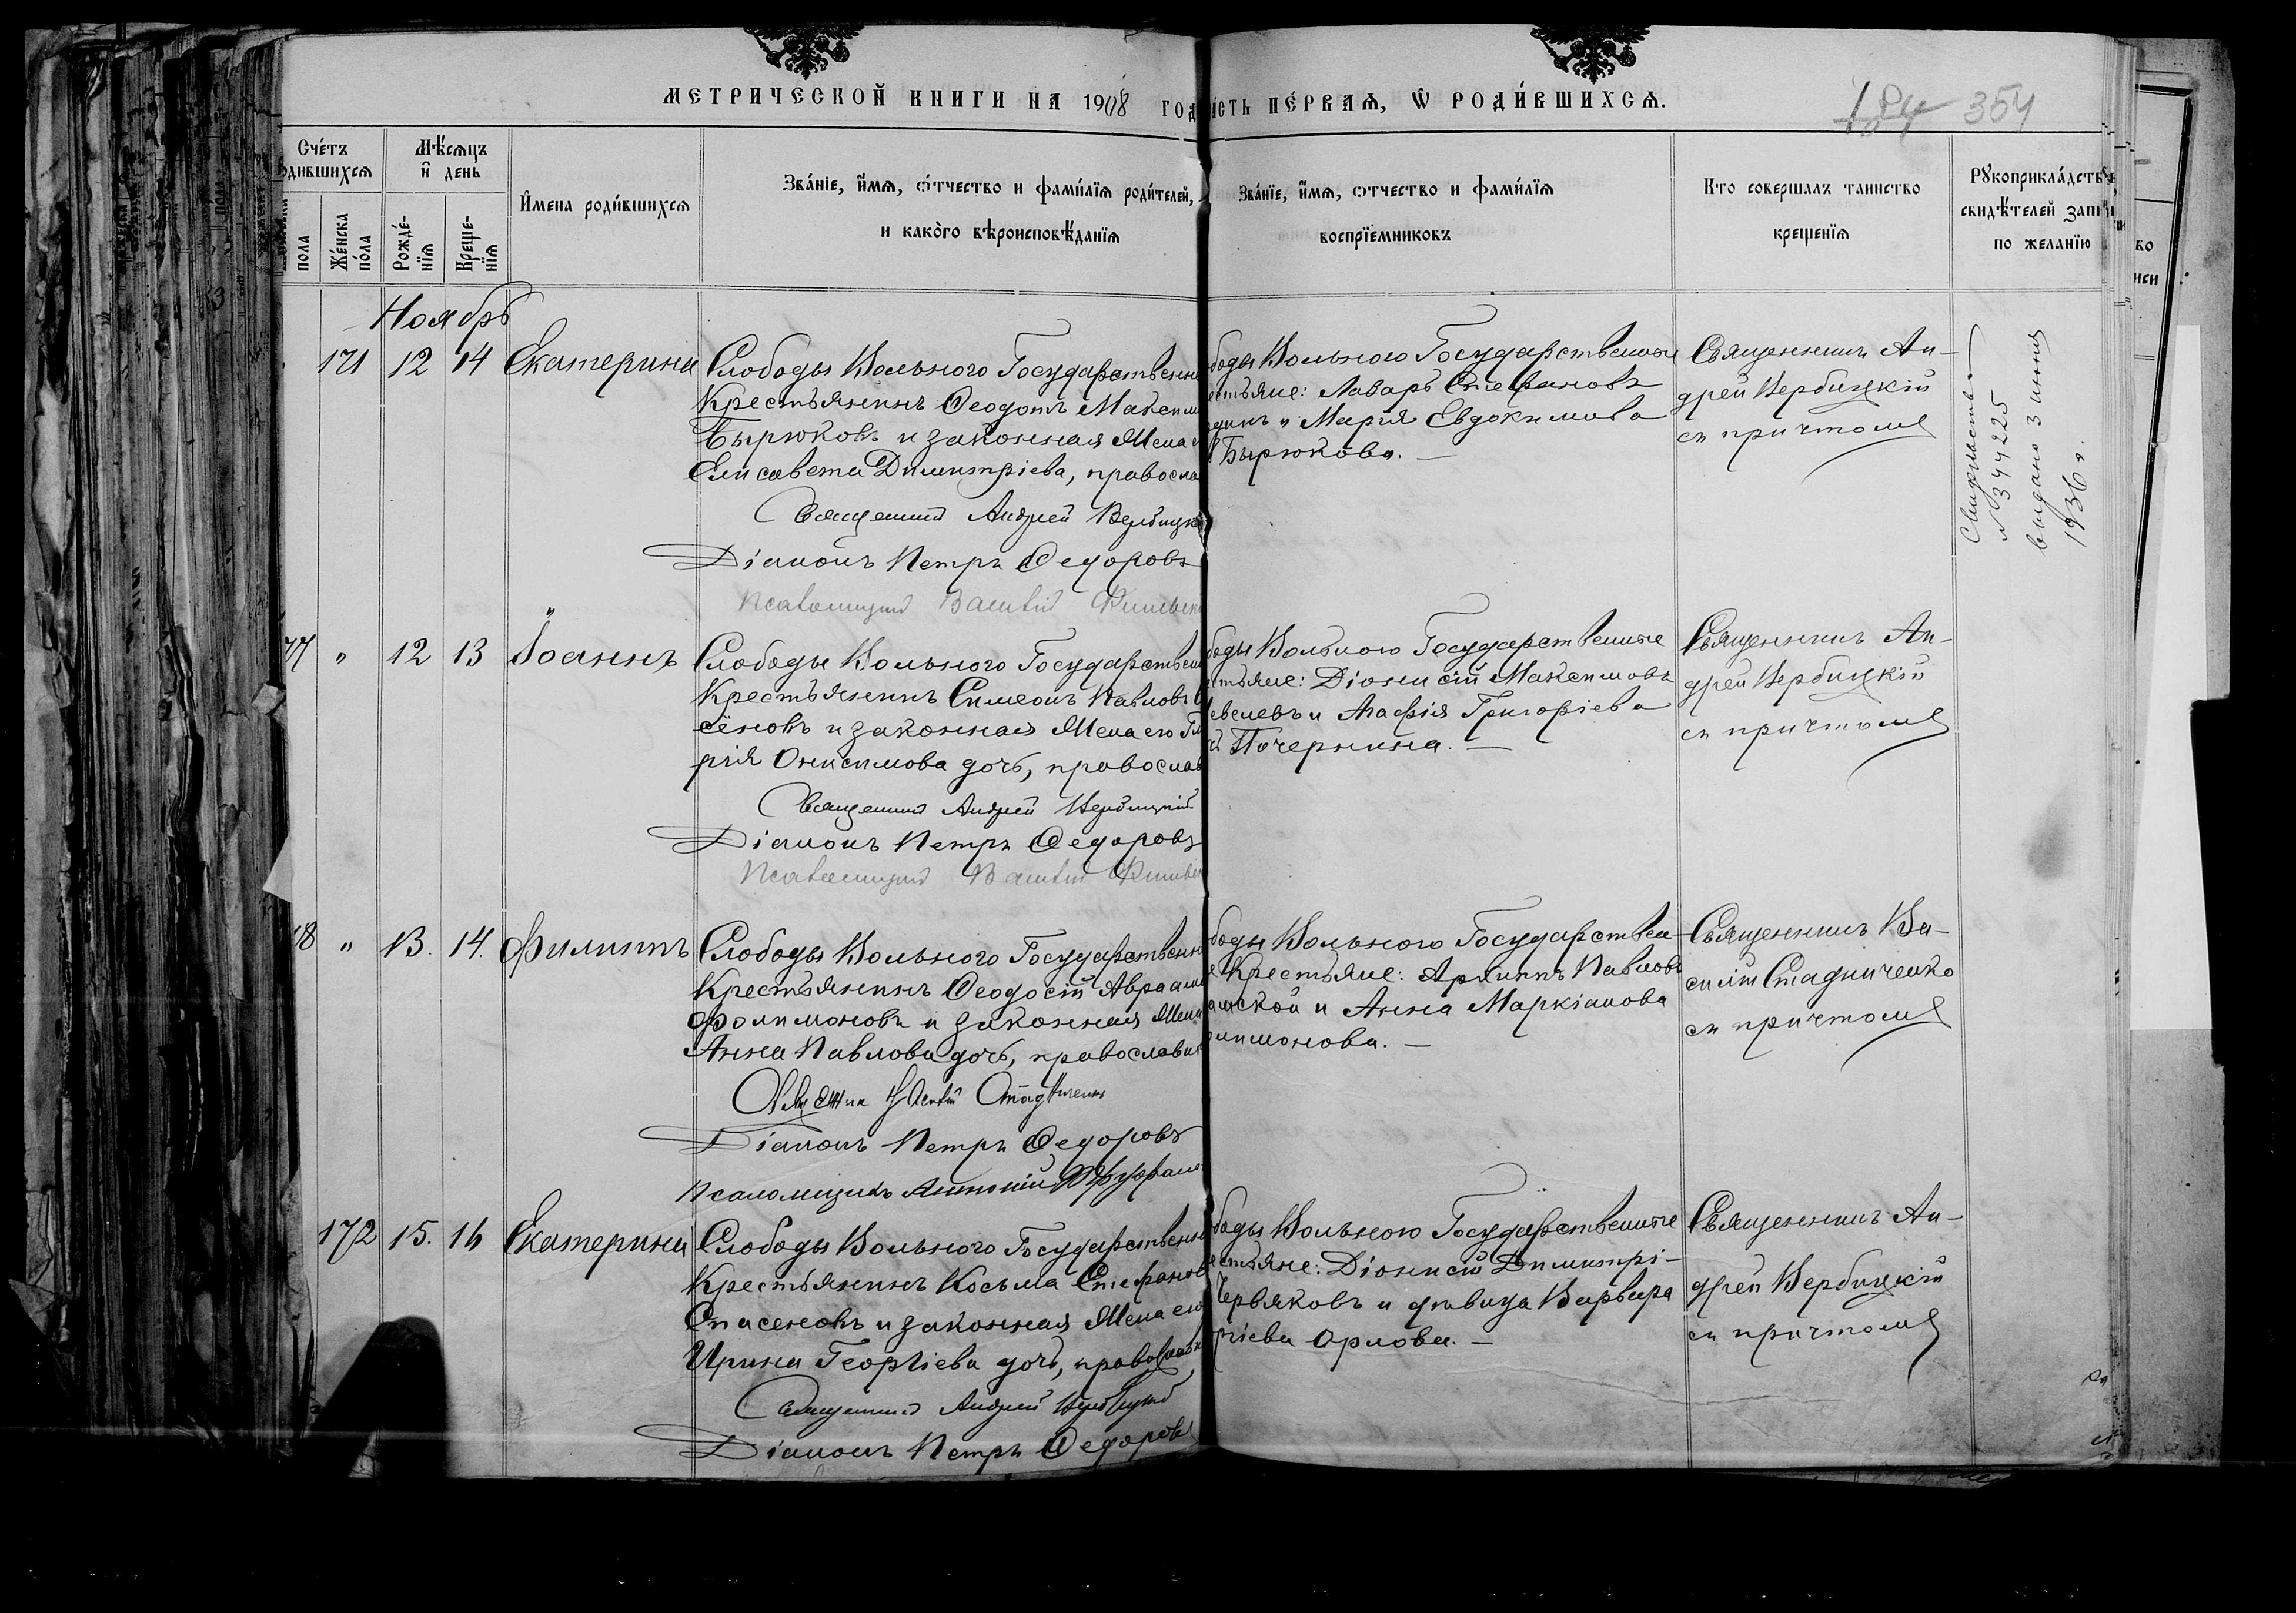 МЕТРИЧЕСКОЙ КНИГИ НА 1908 ГОД
ИСТЬ ПЕ́РВАѦ, Ѡ҆ РОДИ́ВШИХСѦ.
184 354
Сче́тъ
одившихсѧ
Мѣ́сѧцъ
и҆ день
пола
Же́нска по́ла
Рожде́-нїѧ
Креще-нїѧ
И҆мена роди́вшихсѧ
Зва́нїе, и҆́мѧ, ѻ҆́тчество и фами́лїѧ роди́телей,
и како́гѡ вѣроисповѣ́данїѧ
Зва́нїе, и҆́мѧ, ѻтчество и фами́лїѧ
воспрїе́мниковъ
Кто соверша́лъ таинство
крещенїѧ
Рꙋкоприкла́дств
свидѣ́телей запи
по желанїю
Ноябрь
171 12 14 Екатерина
Слободы Вольного Государственн
Крестьянинъ Ѳеодотъ Максим
Бирюковъ и законная Жена е
Елисавета Димитріева, правосла
Священникъ Андрей Вербицкі
Діаконъ Петръ Ѳедоровъ
Псаломщикъ Василій
боды Вольного Государственные
естьяне: Лазарь Стефановъ
и Марія Евдокимова
Бирюкова. —
Священникъ Ан-
дрей Вербицкій
съ причтомъ
Свидѣтельство
№ 344225
выдано 3 июня
1936 г.
77 " 12 13 Іоаннъ
Слободы Вольного Государствен
Крестьянинъ Симеонъ Павловъ С
сёновъ и законная Жена его Гл
рія Онисимова дочь, православ
Священникъ Андрей Вербицкій
Діаконъ Петръ Ѳедоровъ
Псаломщикъ Василій
боды Вольного Государственные
стьяне: Діонисій Максимовъ
евелевъ и Агафія Григоріева
Почернина. —
Священникъ Ан-
дрей Вербицкій
съ причтомъ
78 " 13. 14. Филиппъ
Слободы Вольного Государственн
Крестьянинъ Ѳеодосій Авраам
Фолимоновъ и законная Жена
Анна Павлова дочь, православн
Священникъ Василій Стадниченко
Діаконъ Петръ Ѳедоровъ
Псаломщикъ Антоній
боды Вольного Государствен-
е Крестьяне: Архиппъ Павловъ
анской и Анна Маркіанова
лимонова. —
Священникъ Ва-
силій Стадниченко
съ причтомъ
172 15. 16 Екатерина
Слободы Вольного Государственн
Крестьянинъ Косьма Стефанов
Спасеновъ и законная Жена его
Ирина Георгіева дочь, православн
Священникъ Андрей Вербицкій
Діаконъ Петръ Ѳедоровъ
боды Вольного Государственные
естьяне: Діонисій Димитрі-
Червяковъ и дѣвица Варвара
ргіева Орлова. —
Священникъ Ан-
дрей Вербицкій
съ причтомъ